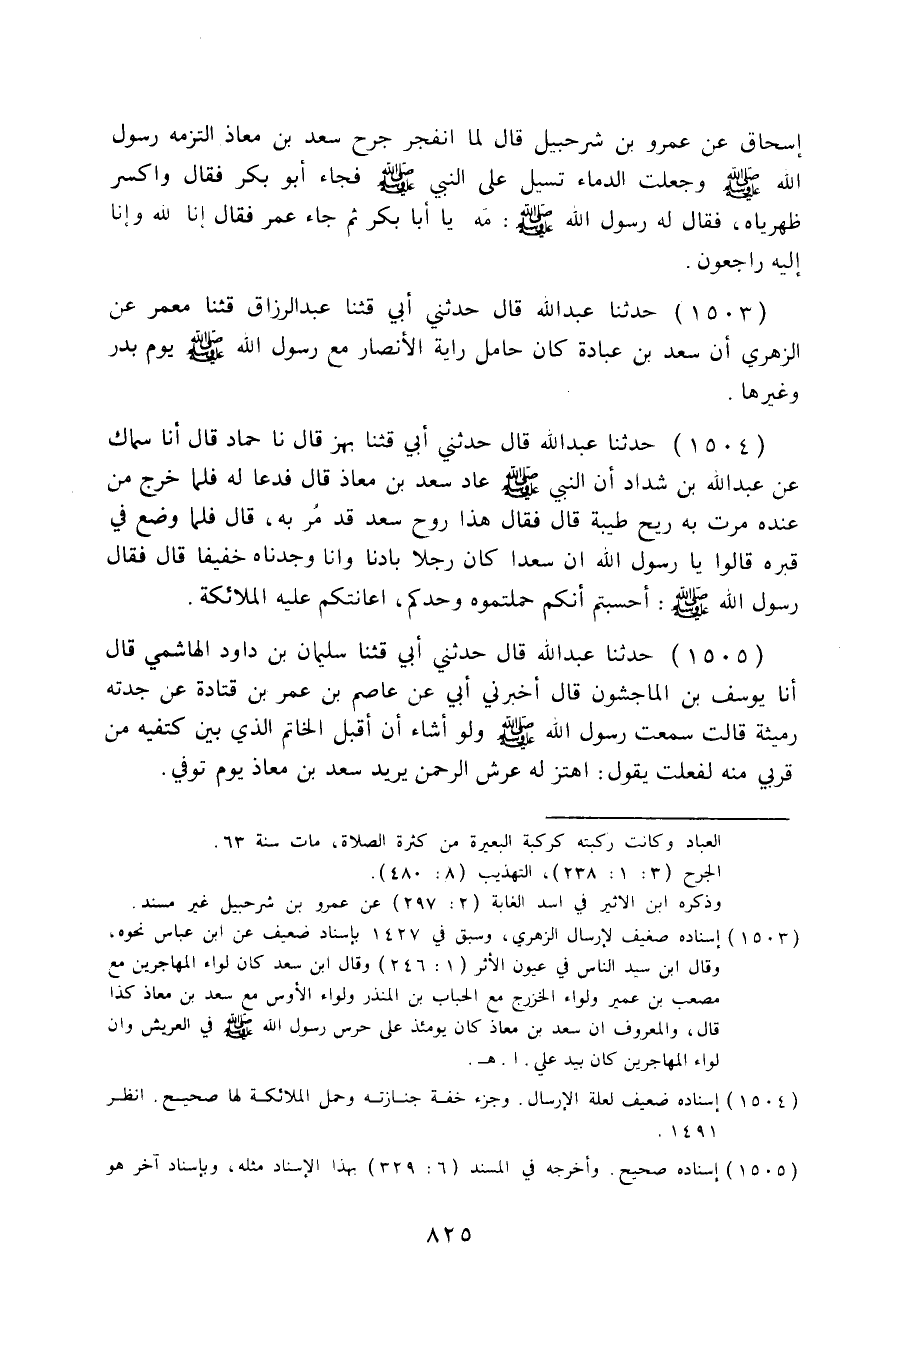 إسحاق عن عمرو بن شرحبيل قال لما انفجر جرح سعد بن معاذ التزمه رسول
الله ﷺ وجعلت الدماء تسيل على النبي ﷺ فجاء أبو بكر فقال واكسر
ظهرياه، فقال له رسول الله ﷺ : مَه يا أبا بكر ثم جاء عمر فقال إنا لله وإنا
إليه راجعون .
(١٥٠٣) حدثنا عبدالله قال حدثني أبي قثنا عبدالرزاق قثنا معمر عن
الزهري أن سعد بن عبادة كان حامل راية الأنصار مع رسول الله ﷺ يوم بدر
وغيرها .
(١٥٠٤) حدثنا عبدالله قال حدثني أبي قثنا بهز قال نا حماد قال أنا سماك
عن عبدالله بن شداد أن النبي ﷺ عاد سعد بن معاذ قال فدعا له فلما خرج من
عنده مرت به ريح طيبة قال فقال هذا روح سعد قد مُر به، قال فلما وضع في
قبره قالوا يا رسول الله ان سعدا كان رجلا بادنا وانا وجدناه خفيفا قال فقال
رسول الله ﷺ : أحسبتم أنكم حملتموه وحدكم، اعانتكم عليه الملائكة .
(١٥٠٥) حدثنا عبدالله قال حدثني أبي قثنا سليمان بن داود الهاشمي قال
أنا يوسف بن الماجشون قال أخبرني أبي عن عاصم بن عمر بن قتادة عن جدته
رميثة قالت سمعت رسول الله ﷺ ولو أشاء أن أقبل الخاتم الذي بين كتفيه من
قربي منه لفعلت يقول : اهتز له عرش الرحمن يريد سعد بن معاذ يوم توفي .
العباد وكانت ركبته كركبة البعيرة من كثرة الصلاة، مات سنة ٦٣ .
الجرح (٣: ١: ٢٣٨)، التهذيب (٨: ٤٨٠).
وذكره ابن الاثير في اسد الغابة (٢: ٢٩٧) عن عمرو بن شرحبيل غير مسند .
(١٥٠٣) إسناده ضعيف لإرسال الزهري، وسبق في ١٤٢٧ بإسناد ضعيف عن ابن عباس نحوه،
وقال ابن سيد الناس في عيون الأثر (١: ٢٤٦) وقال ابن سعد كان لواء المهاجرين مع
مصعب بن عمير ولواء الخزرج مع الحباب بن المنذر ولواء الأوس مع سعد بن معاذ كذا
قال، والمعروف ان سعد بن معاذ كان يومئذ على حرس رسول الله ﷺ في العريش وان
لواء المهاجرين كان بيد علي . ا . هـ .
(١٥٠٤) إسناده ضعيف لعلة الإرسال . وجزء خفة جنازته وحمل الملائكة لها صحيح . انظر
١٤٩١ .
(١٥٠٥) إسناده صحيح . وأخرجه في المسند (٦: ٣٢٩) بهذا الإسناد مثله، وبإسناد آخر هو
٨٢٥